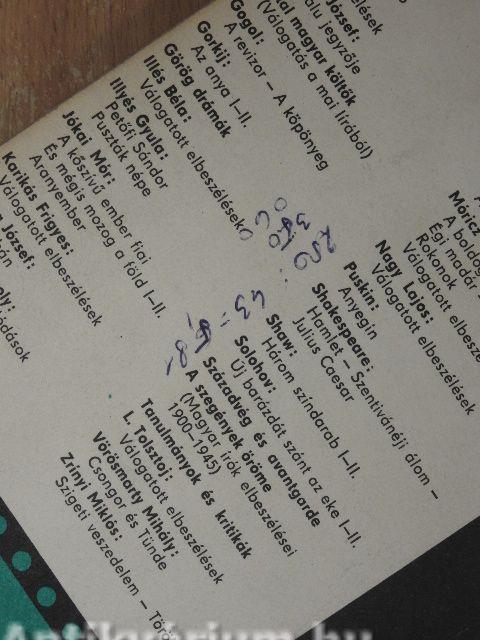 József:
alu jegyzője
al magyar költők
(Válogatás a mai lírából)
Gogol:
A revizor – A köpönyeg
Gorkij:
Az anya I–II.
Görög drámák
Illés Béla:
Válogatott elbeszélések
Illyés Gyula:
Petőfi Sándor
Puszták népe
Jókai Mór:
A kőszívű ember fiai
És mégis mozog a föld I–II.
Aranyember
Karikás Frigyes:
Válogatott elbeszélések
József:
Móricz
A boldog
Égi madár
Rokonok
Válogatott elbesz
Nagy Lajos:
Válogatott elbeszélések
Puskin:
Anyegin
Shakespeare:
Hamlet – Szentivánéji álom –
Julius Caesar
Shaw:
Három színdarab I–II.
Solohov:
Új barázdát szánt az eke I–II.
Századvég és avantgarde
A szegények öröme
(Magyar írók elbeszélései
1900–1945)
Tanulmányok és kritikák
L. Tolsztoj:
Válogatott elbeszélések
Vörösmarty Mihály:
Csongor és Tünde
Zrínyi Miklós:
Szigeti veszedelem – Törö
Antikvárium.hu